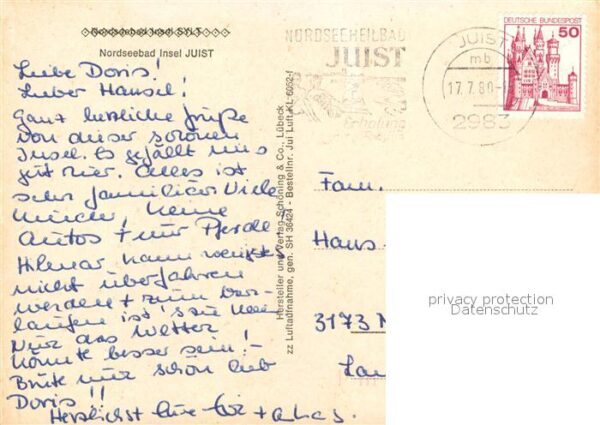 Nordseebad Insel SYLT
Nordseebad Insel JUIST
Liebe Doris!
Lieber Hansel!
Ganz herzliche Grüße
von dieser schönen
Insel. Es gefällt uns
gut hier. Alles ist
sehr familiär Viele
Kinder, keine
Autos + nur Pferde
Hilmar kann wenigstens
nicht überfahren
werden + zum
laufen ist
Nur das Wetter
könnte besser sein! –
Bleibt nur schön lieb
Doris!!
Herzlichst Eure
Hersteller und Verlag Schöning & Co., Lübeck
zz Luftaufnahme, gen. SH 36424 - Bestellnr. Jui Luft KL 6052-f
NORDSEEHEILBAD
JUIST
Erholung
JUIST
mb
17.7.80-
2983
DEUTSCHE BUNDESPOST
50
Fam.
Hans-
3173
privacy protection
Datenschutz